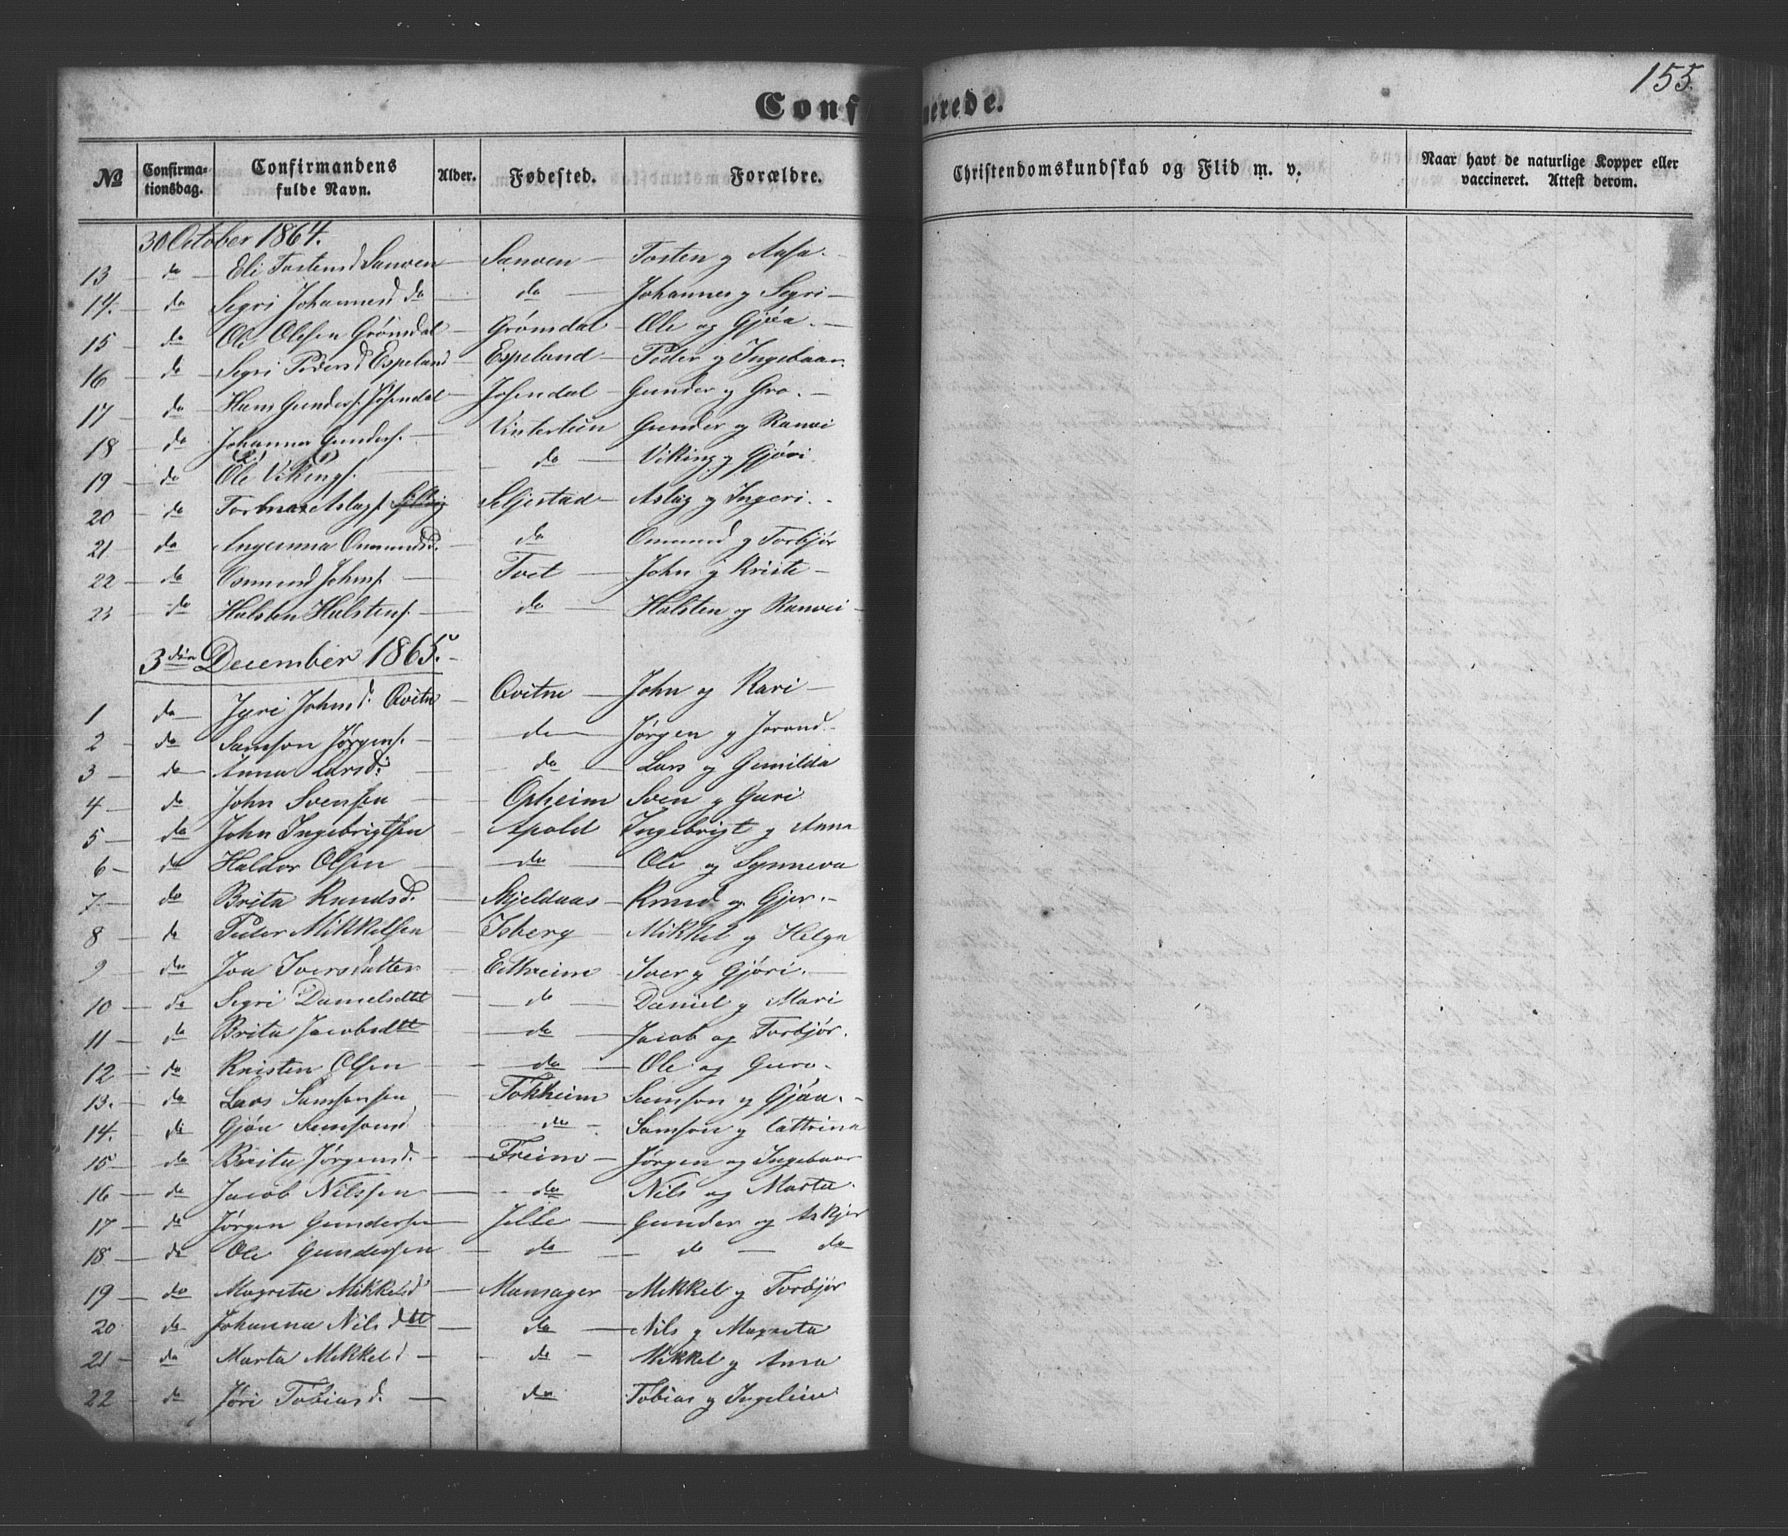 155.
Confirmerede.
No Confirmationsdag. Confirmandens fulde Navn. Alder. Fødested. Forældre. Christendomskundskab og Flid m. v. Naar havt de naturlige Kopper eller vaccineret. Attest derom.
30 October 1864.
13 — do Eli Tostensd Sanven — Sanven — Tosten og Aasa. —
14. — do Segri Johannesd do — do — Johannes og Segri —
15 — do Ole Olsen Grönsdal — Grönsdal — Ole og Gjöa. —
16 — do Segri Pedersd Espeland — Espeland — Peder og Ingebaar.
17 — do Hans Gunders. Josendal — Josendal — Gunder og Gro. —
18 — do Johannes Gunders. — Vintertun Gunder og Ranvei
19 — do Ole Vikings. — do — Viking og Gjöri
20 — do Tormar Aslags. Seljestad — Aslag og Ingeri. —
21 — do Ingeanna Omundsd. do Omund og Torbjör
22 — do Osmund Johns. — Tvet — John og Kriste —
23 — do Halsten Halstens. — do — Halsten og Ranvei —
3die December 1865. —
1 do — Jyri Johnsd. Qvitn — Qvitne — John og Kari —
2 — do Samson Jörgens. — do — Jörgen og Jorand. —
3 — do — Anna Larsd: — do — Lars og Gunilda
4 — do John Svensen — Opheim Sven og Guri
5 — do John Ingebrigtsen — Apold Ingebrigt og Anna
6 — do Haldor Olsen — do — Ole og Synneva
7. — do Brita Knudsd. — Skjeldaas — Knud og Gjer. —
8 — do Peder Mikkelsen — Isberg — Mikkel og Helga
9 — do Joa Iversdatter — Eitheim — Iver og Gjöri. —
10 — do Segri Danielsdtt — do — Daniel og Mari
11 — do Brita Jacobsdtt — do — Jacob og Torbjör.
12 — do Kristen Olsen — do — Ole og Guro. —
13. — do Lars Samsonsen — Tokheim Samson og Gjöa. —
14. — do Gjöa Samsonsd — do — Samson og Cattrina
15 — do Brita Jörgensd. — Freim — Jörgen og Ingebaar
16 — do Jacob Nilssen — do — Nils og Marta.
17 — do Jörgen Gundersen — Jelle — Gunder og Askjer
18 — do Ole Gundersen — do — do — do
19 — do Magreta Mikkelsd — Mansager — Mikkel og Torbjör
20 — do Johanna Nilsdtt — do — Nils og Magreta
21 — do Marta Mikkelsd — do — Mikkel og Anna
22 — do Jöri Tobiasd. — do Tobias og Ingelein